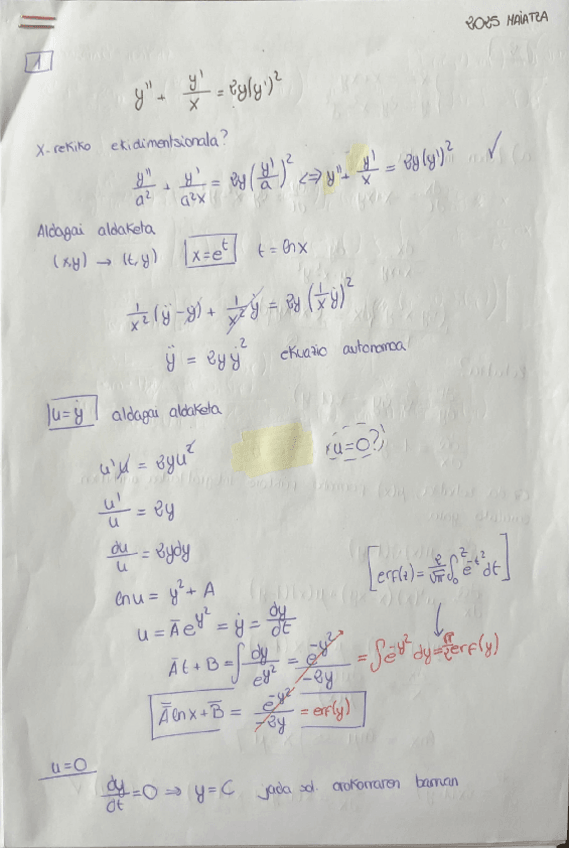 2025 MAIATZA
1
y'' + y'/x = 2y(y')²
x-rekiko ekidimentsionala?
y''/a² + y'/a²x = 2y(y'/a)² <=> y'' + y'/x = 2y(y')² ✓
Aldagai aldaketa
(x,y) → (t,y) x=e^t t = ln x
1/x² (ÿ-ẏ) + 1/x² ẏ = 2y (1/x ẏ)²
ÿ = 2yẏ² ekuazio autonomoa
u=ẏ aldagai aldaketa
u'u = 2yu² u=0?
u'/u = 2y
du/u = 2ydy
ln u = y² + A
[erf(z) = 2/√π ∫₀^z e^-t² dt]
u = Āe^y² = ẏ = dy/dt
Āt + B = ∫ dy/e^y² = e^-y²/-2y = ∫e^-y² dy = √π/2 erf(y)
Ā ln x + B̄ = e^-y²/-2y = erf(y)
u=0
dy/dt = 0 ⇒ y = C jada sol. orokorraren barman